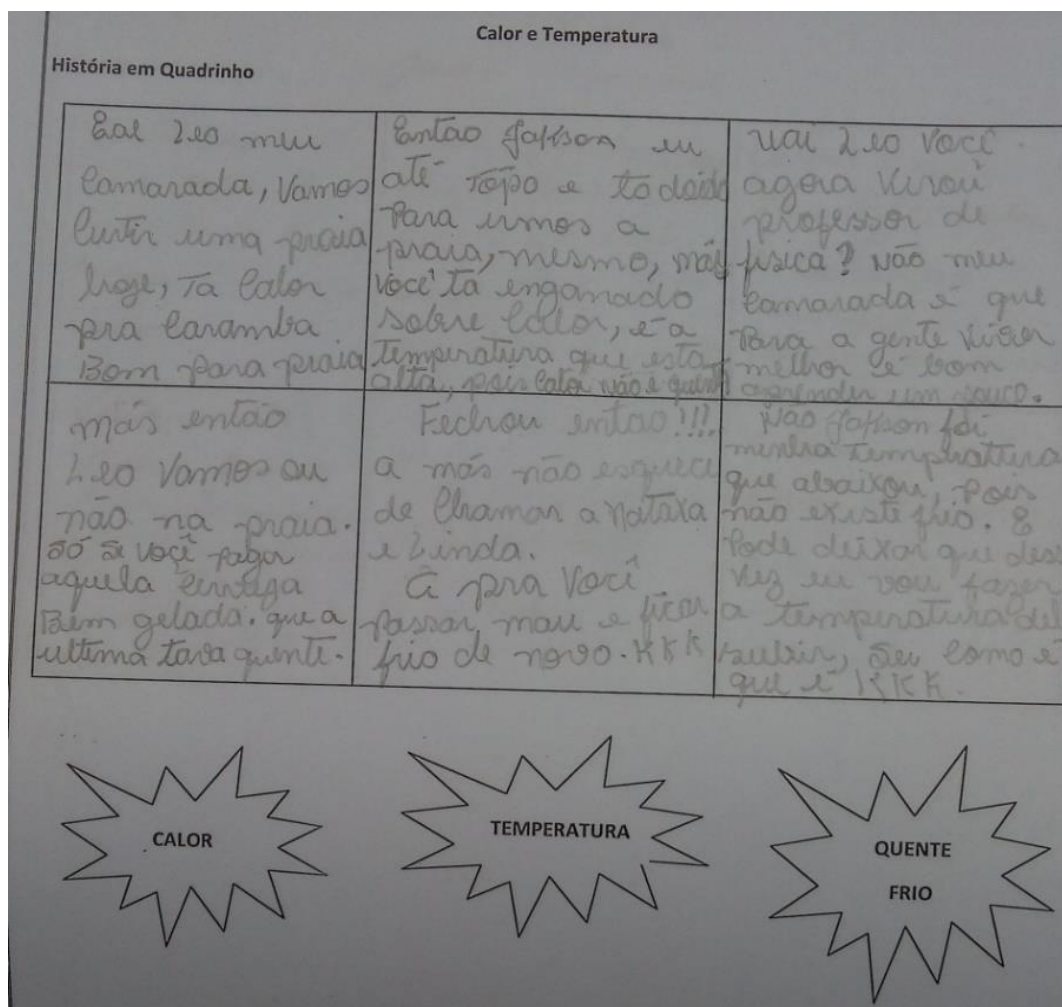 Calor e Temperatura
História em Quadrinho
Eai Leo meu
camarada, Vamos
curtir uma praia
hoje, Ta Calor
pra Caramba
Bom para praia
Então Jakson eu
até Topo e to doido
Para irmos a
praia, mesmo, más
Você ta enganado
sobre Calor, é a
temperatura que esta
alta, pois Calor não é quente
uai Leo Você
agora Virou
professor de
fisica? Não meu
camarada é que
Para a gente viver
melhor é bom
aprender um pouco.
más então
Leo Vamos ou
não na praia.
Só se você pagar
aquela
Bem gelada. que a
ultima tava quente.
Fechou então!!!
a más não esqueci
de Chamar a Nataxa
e Linda.
a pra Você
Passar mau e ficar
frio de novo. KKK
Não Jakson foi
minha
que abaixou, pois
não existe frio. E
Pode deixar que
vez eu vou fazer
a temperatura
subir, Sei como é
que é KKK.
CALOR
TEMPERATURA
QUENTE
FRIO